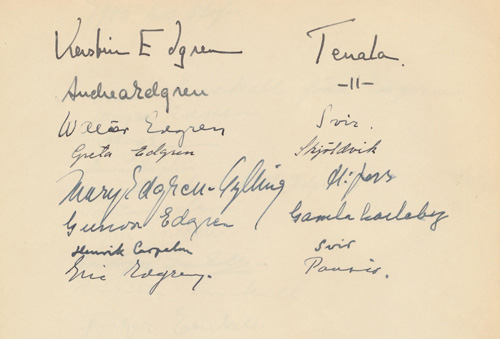 Kerstin Edgren Tenala.
Andrea Edgren -11-
Walter Edgren Svir.
Greta Edgren Skjöldvik
Mary Edgren-Gylling H:fors
Gunvor Edgren Gamla Karleby
Henrik Carpelan Svir
Eric Edgren.